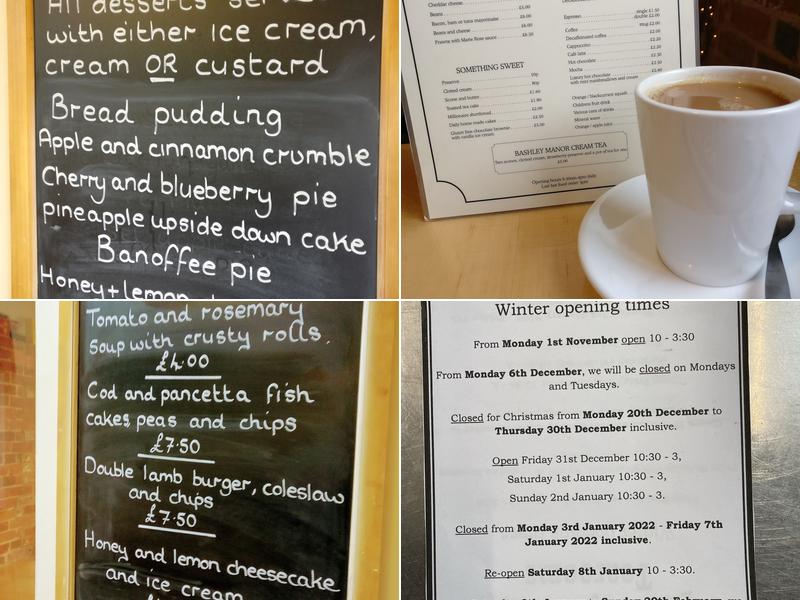 with either ice cream,
cream OR custard
Bread pudding
Apple and cinnamon crumble
Cherry and blueberry pie
pineapple upside down cake
Banoffee pie
Honey + lemon
Beans
Bacon, ham or tuna mayonnaise
Beans and cheese
Prawns with Marie Rose sauce
SOMETHING SWEET
Preserve
Clotted cream
Scone and butter
Toasted tea cake
Millionaires shortbread
Daily home made cakes
Gluten free chocolate brownie
with vanilla ice cream
Espresso
Coffee
Decaffeinated coffee
Cappuccino
Café latte
Hot chocolate
Mocha
Luxury hot chocolate
with mini marshmallows and cream
Orange / blackcurrant squash
Childrens fruit drink
Various cans of drinks
Mineral water
Orange / apple juice
BASHLEY MANOR CREAM TEA
Tomato and rosemary
soup with crusty rolls.
£4.00
Cod and pancetta fish
cakes, peas and chips
£7.50
Double lamb burger, coleslaw
and chips
£7.50
Honey and lemon cheesecake
and ice cream
Winter opening times
From Monday 1st November open 10 - 3:30
From Monday 6th December, we will be closed on Mondays
and Tuesdays.
Closed for Christmas from Monday 20th December to
Thursday 30th December inclusive.
Open Friday 31st December 10:30 - 3,
Saturday 1st January 10:30 - 3,
Sunday 2nd January 10:30 - 3.
Closed from Monday 3rd January 2022 - Friday 7th
January 2022 inclusive.
Re-open Saturday 8th January 10 - 3:30.